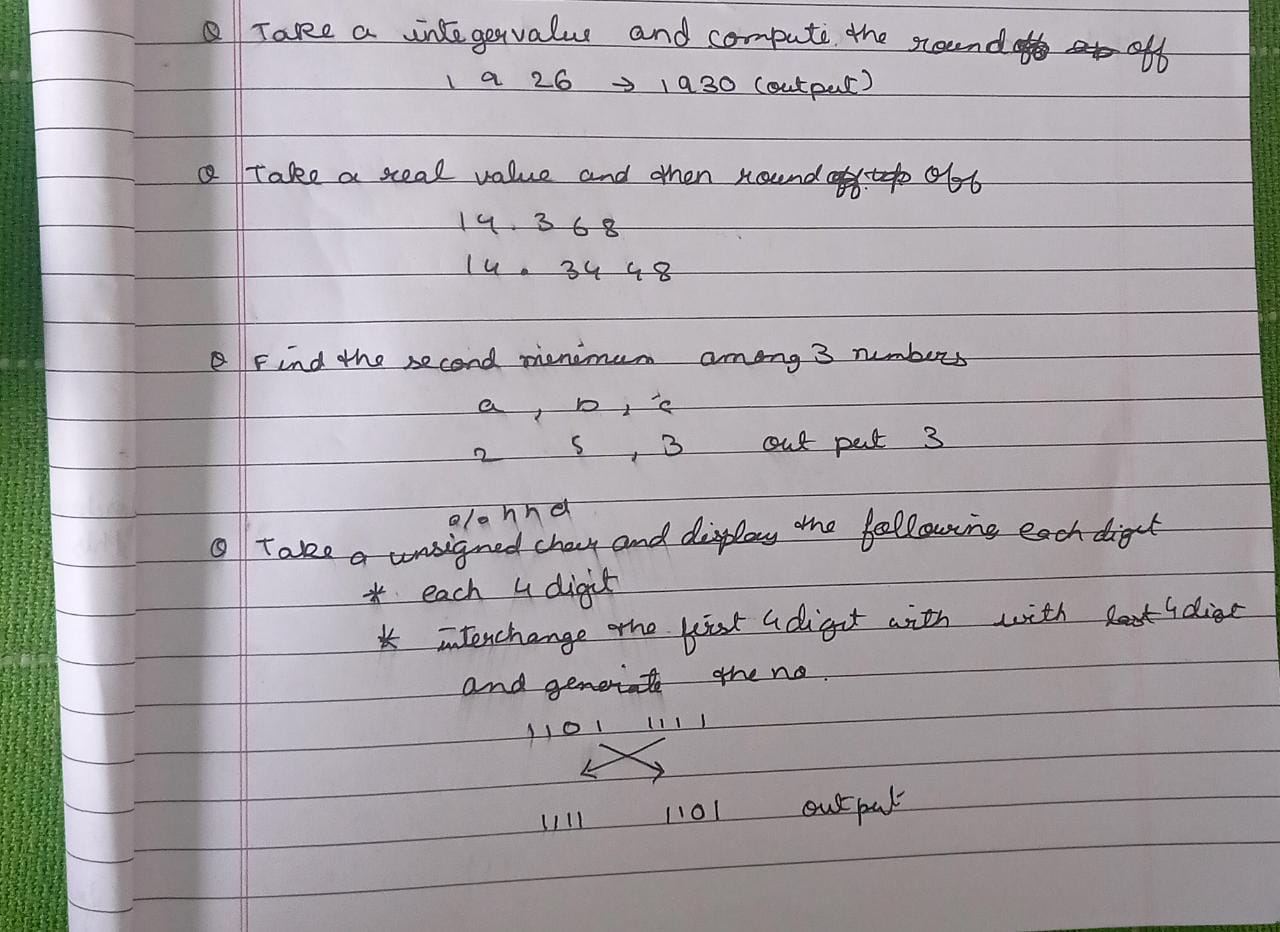 Q Take a integer value and compute the round off
1 9 26 → 1930 (output)
Q Take a real value and then round off
14.368
14.3448
Q Find the second minimum among 3 numbers
a, b, c
2 5, 3 out put 3
%hhd
Q Take a unsigned char and display the following each digit
* each 4 digit
* interchange the first 4 digit with with last 4 digit
and generate the no.
1101 1111
1111 1101 output